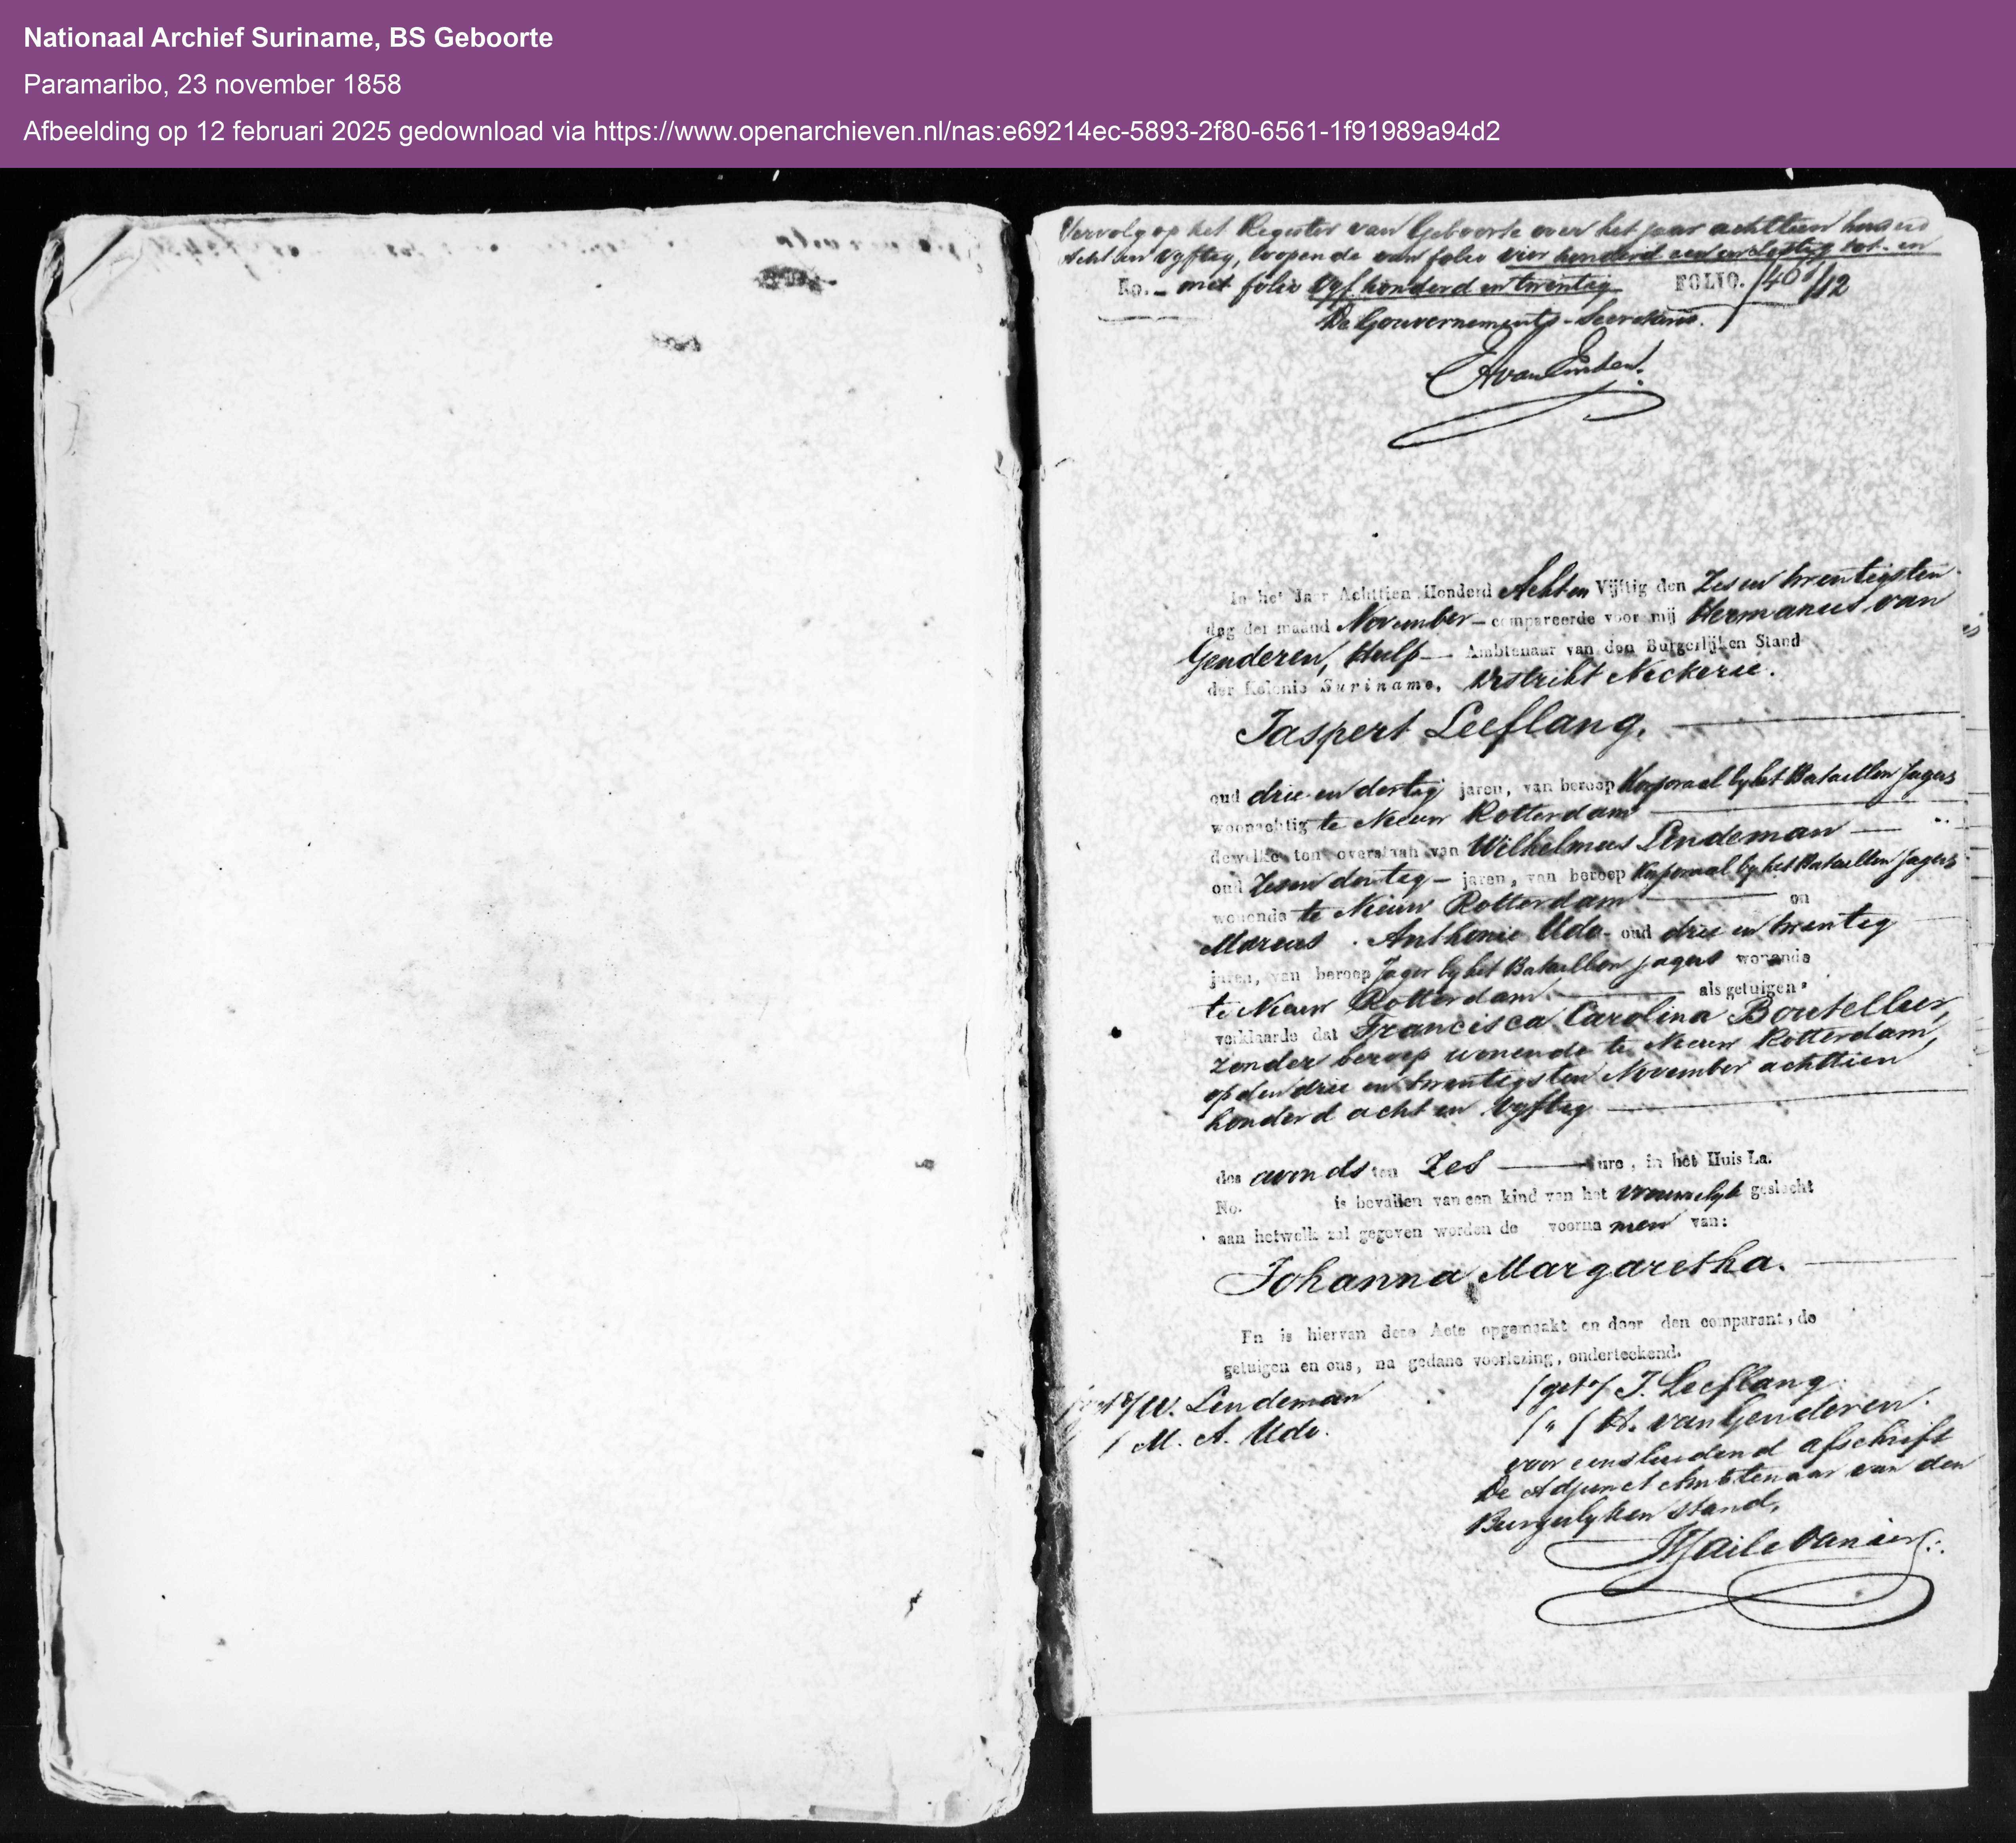 Nationaal Archief Suriname, BS Geboorte
Paramaribo, 23 november 1858
Afbeelding op 12 februari 2025 gedownload via https://www.openarchieven.nl/nas:e69214ec-5893-2f80-6561-1f91989a94d2
Vervolg op het Register van Geboorte over het jaar achttien honderd
Acht en Vyftig, loopende van folio vier honderd een en zestig tot en
No. met folio Vyf honderd en twentig FOLIO. 461/12
De Gouvernements-Secretaris.
In het Jaar Achttien Honderd Acht en Vijftig den Zes en twentigsten
dag der maand November compareerde voor mij Hermanus van
Genderen, Hulp Ambtenaar van den Burgerlijken Stand
der Kolonie Suriname, Distrikt Neckerie.
Jaspert Leeflang.
oud drie en dertig jaren, van beroep Korporaal by het Bataillon Jagers
woonachtig te Nieuw Rotterdam
dewelke ten overstaan van Wilhelmus Lindeman
oud Zes en dertig jaren, van beroep Korporaal by het Bataillon Jagers
wonende te Nieuw Rotterdam en
Marcus Anthonie Udo oud drie en twentig
jaren, van beroep Jager by het Bataillon Jagers wonende
te Nieuw Rotterdam als getuigen
verklaarde dat Francisca Carolina Boutellier,
zonder beroep wonende te Nieuw Rotterdam,
op den drie en twentigsten November achttien
honderd acht en Vyftig
des avonds ten Zes ure, in het Huis La.
No. is bevallen van een kind van het vrouwelyk geslacht
aan hetwelk zal gegeven worden de voorna men van:
Johanna Margaretha.
En is hiervan deze Acte opgemaakt en door den comparant, de
getuigen en ons, na gedane voorlezing, onderteekend.
/get/ J. Leeflang
W. Lindeman
/"/ H. van Genderen.
M. A. Udo.
voor eensluidend afschrift
De Adjunct Ambtenaar van den
Burgerlyken Stand,